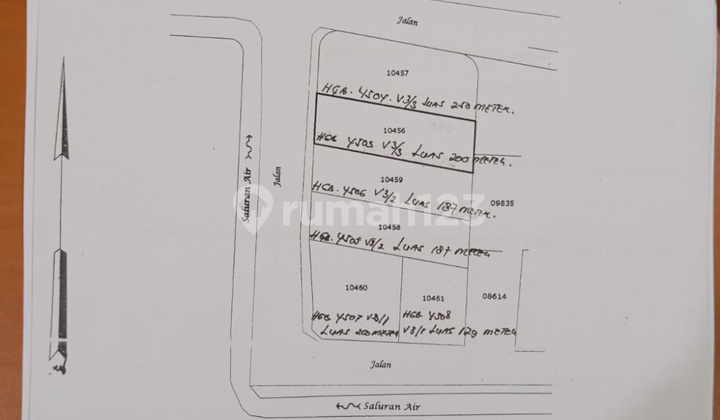 Jalan
10457
HGB. 4504. V3/3 LUAS 250 METER.
10456
HGB 4503 V3/3 LUAS 200 METER.
Saluran Air
Jalan
10459
HGB. 4506 V3/2 LUAS 187 METER.
09835
rumah123
10458
HGB 4505 V3/2 LUAS 187 METER
10460
10461
08614
HGB 4507 V3/1
LUAS 200 METER
HGB. 4508
V3/1 LUAS 129 METER
Jalan
Saluran Air